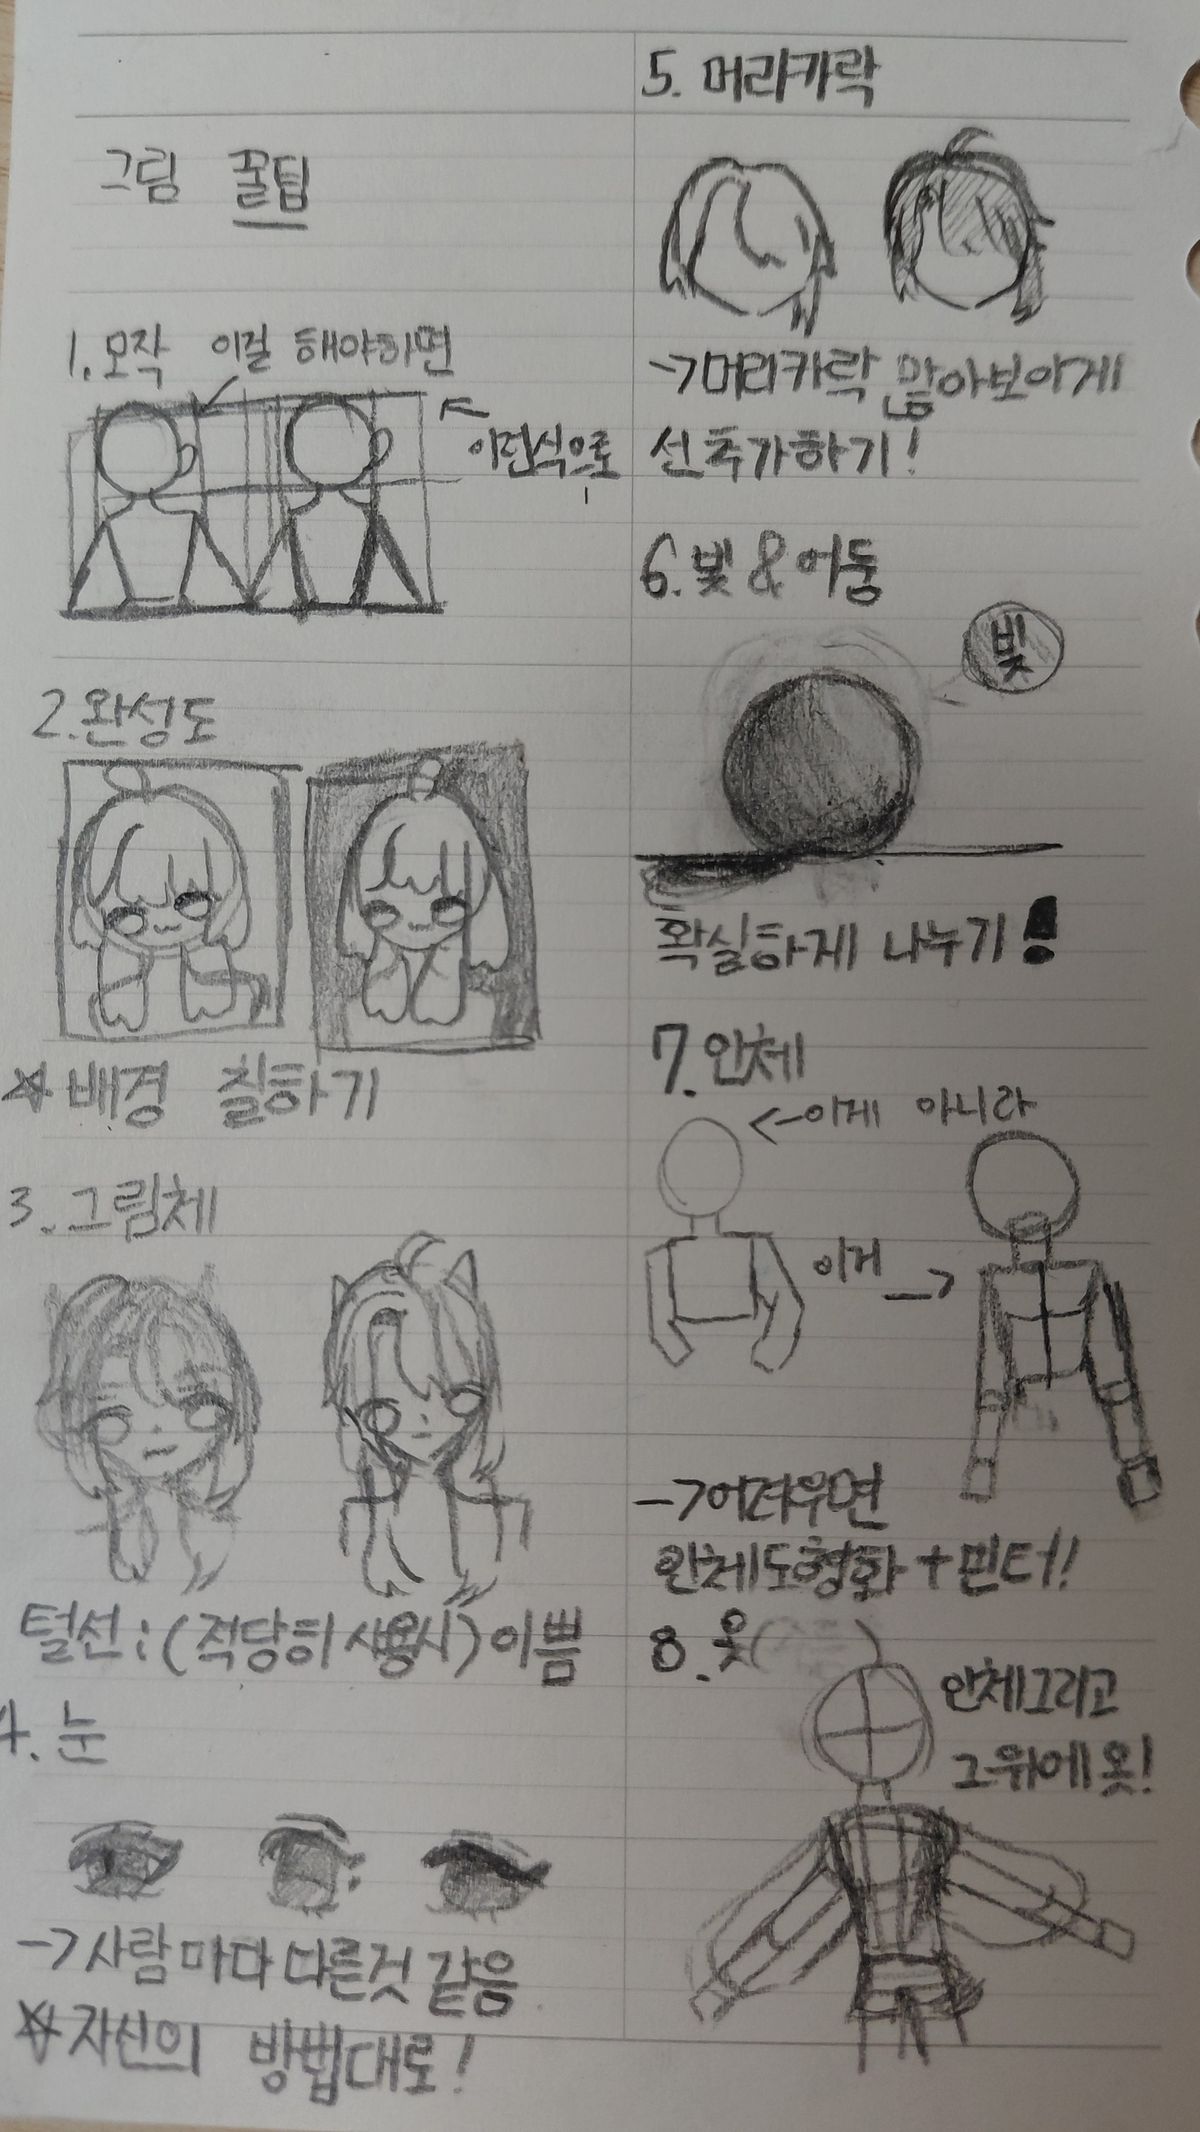 그림 꿀팁
1. 모작 이걸 해야하면
이런식으로
2. 완성도
☆ 배경 칠하기
3. 그림체
털선: (적당히 사용시) 이쁨
4. 눈
-> 사람마다 다른것 같음
☆ 자신의 방법대로!
5. 머리카락
-> 머리카락 많아보이게
선추가하기!
6. 빛 & 어둠
빛
확실하게 나누기!
7. 인체
<- 이게 아니라
이거 ->
-> 어려우면
인체도형화 + 핀터!
8. 옷(
인체그리고
그위에 옷!